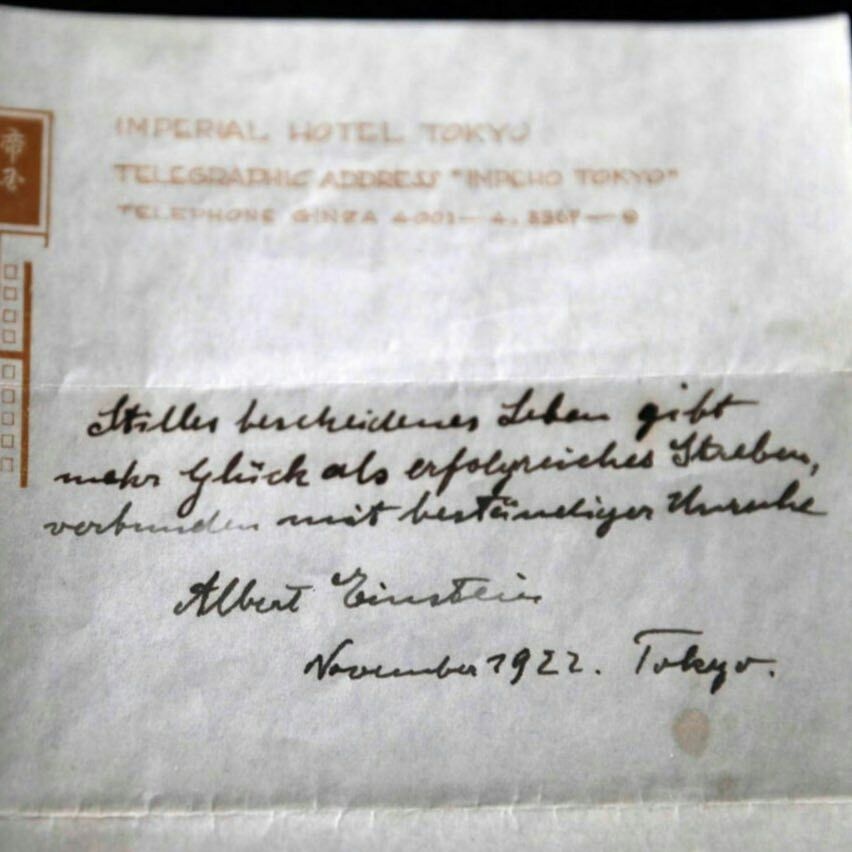 IMPERIAL HOTEL TOKYO
TELEGRAPHIC ADDRESS "IMPEHO TOKYO"
TELEPHONE GINZA
帝
Stilles bescheidenes Leben gibt
mehr Glück als erfolgreiches Streben,
verbunden mit beständiger Unruhe
Albert Einstein
November 1922. Tokyo.